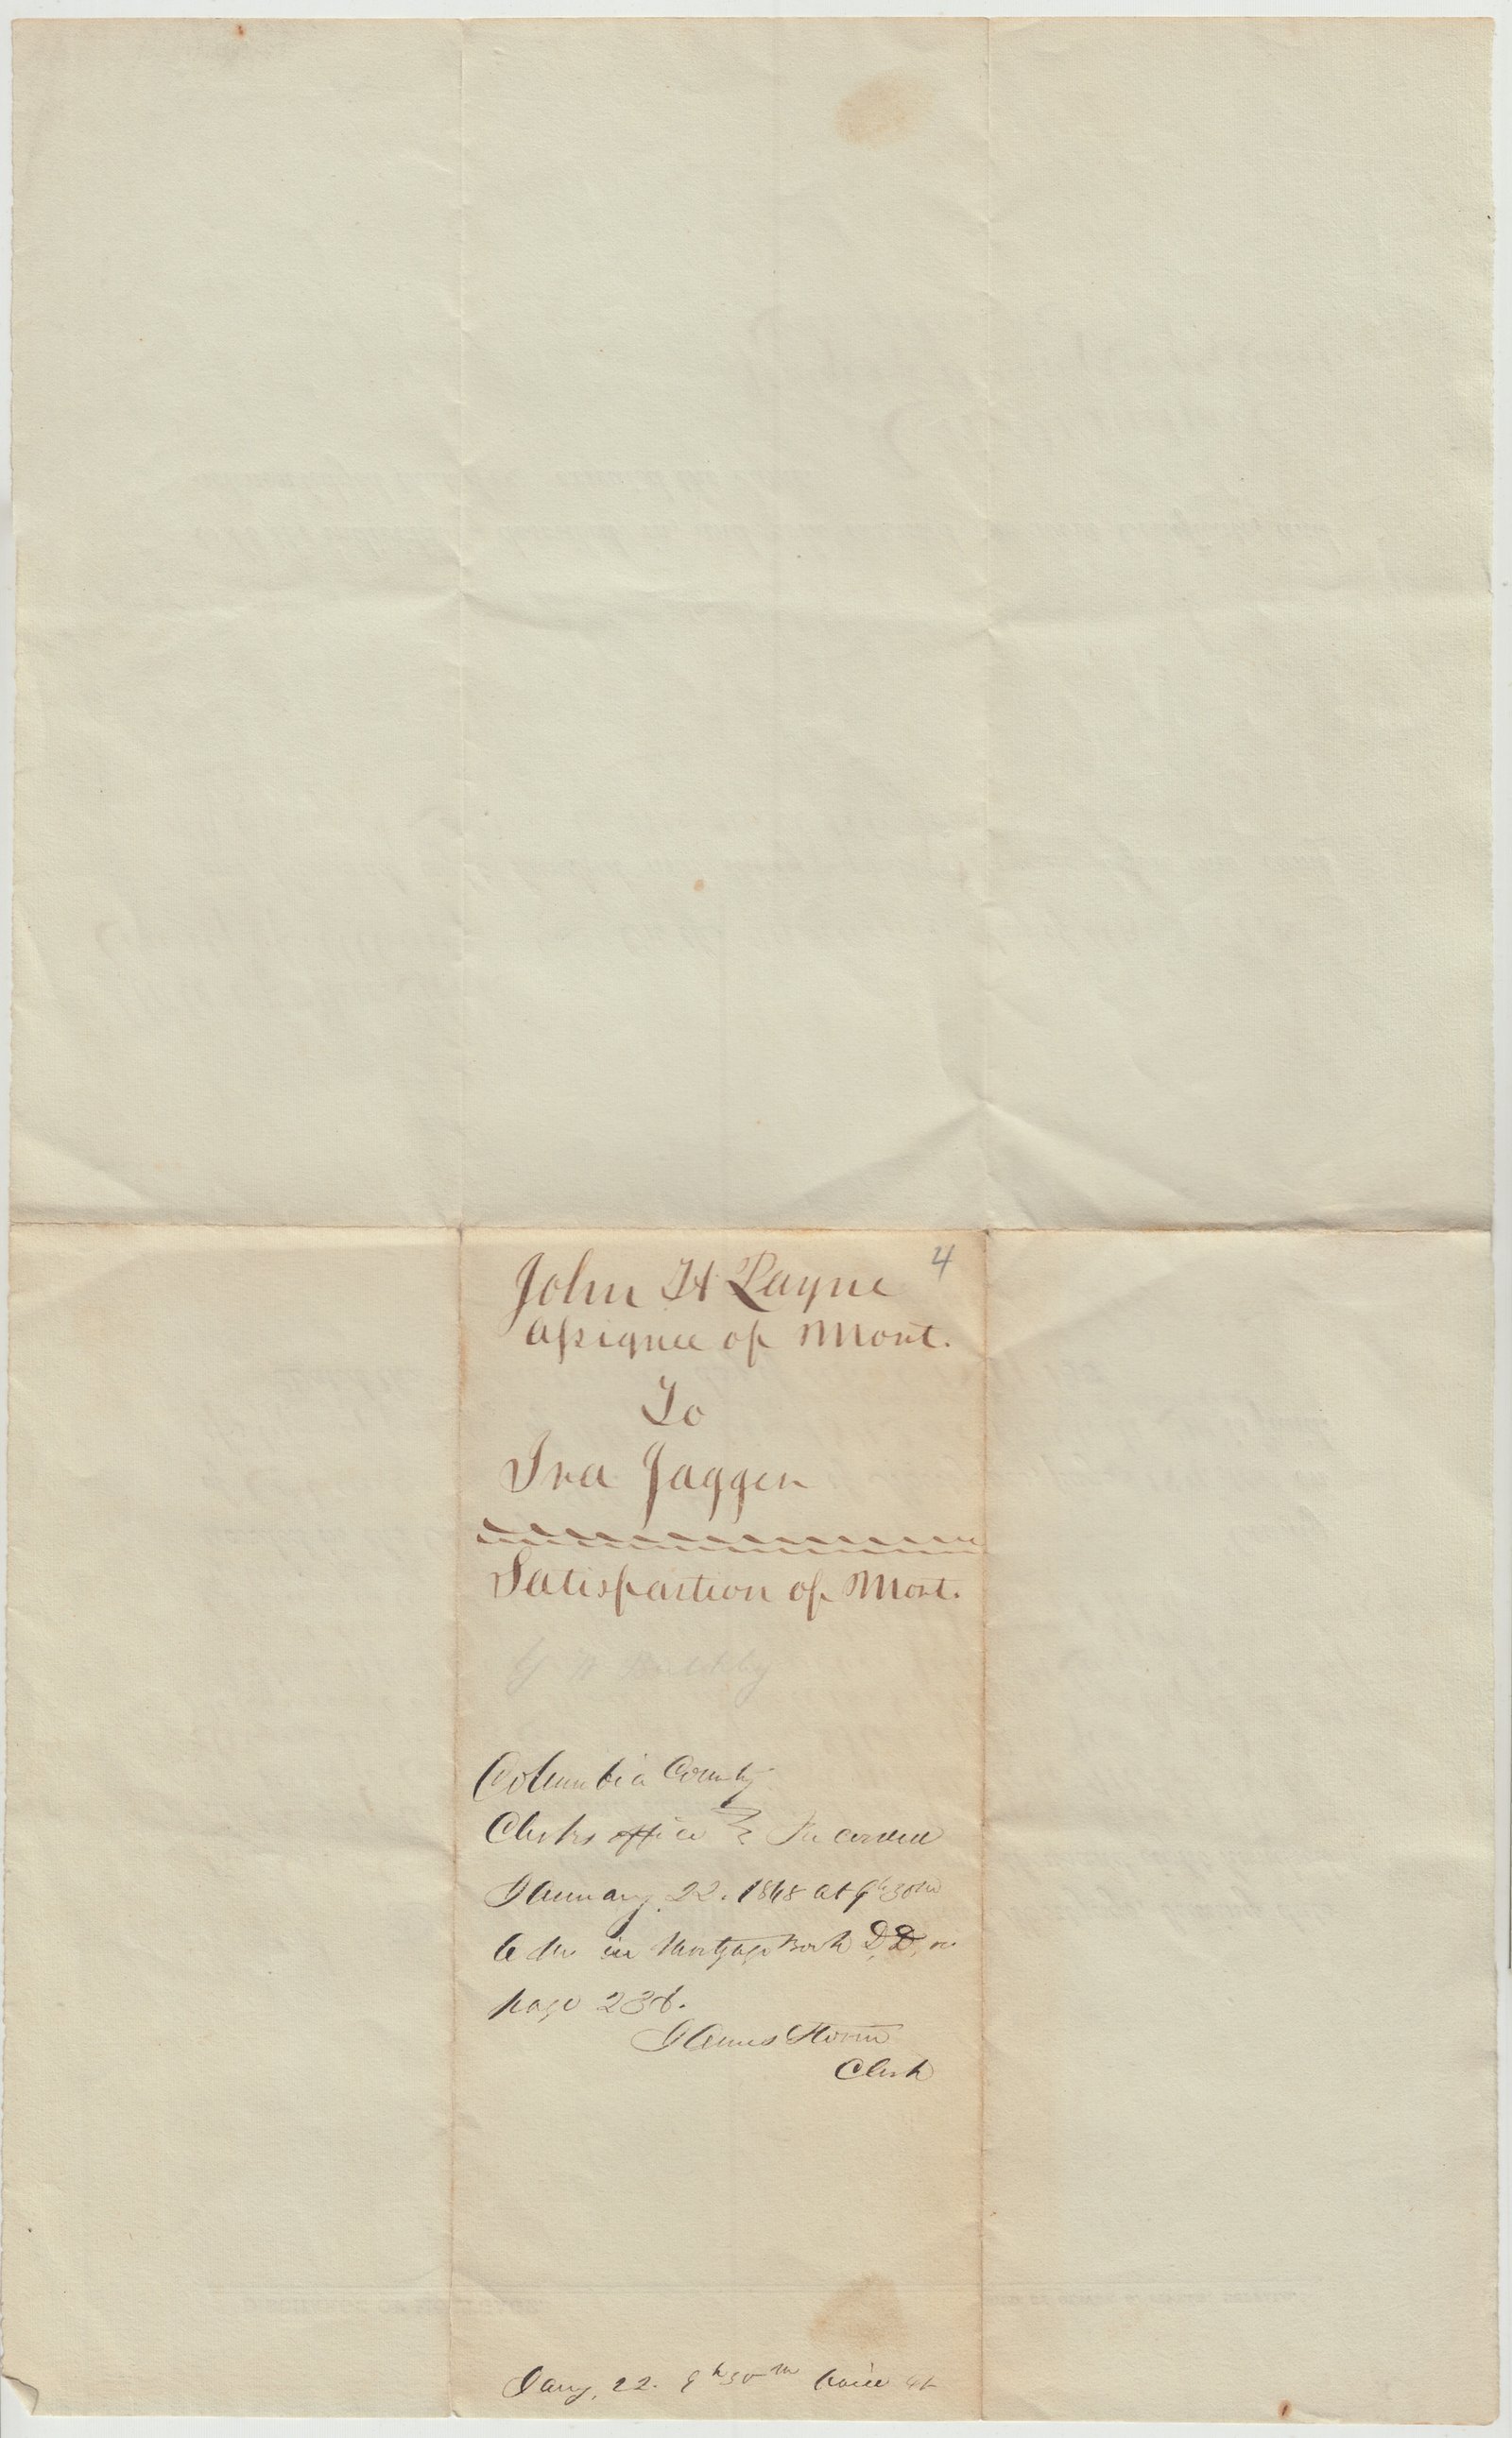 4
John H Payne
assignee of Mort.
To
Ira Jagger
Satisfaction of Mort.
Columbia County
Clerks office } Recorded
January 22. 1848 at 9h 30m
A M in Mortgage Book D,D, on
page 238.
James Storm
Clerk
Jany, 22. 9h 30m paid